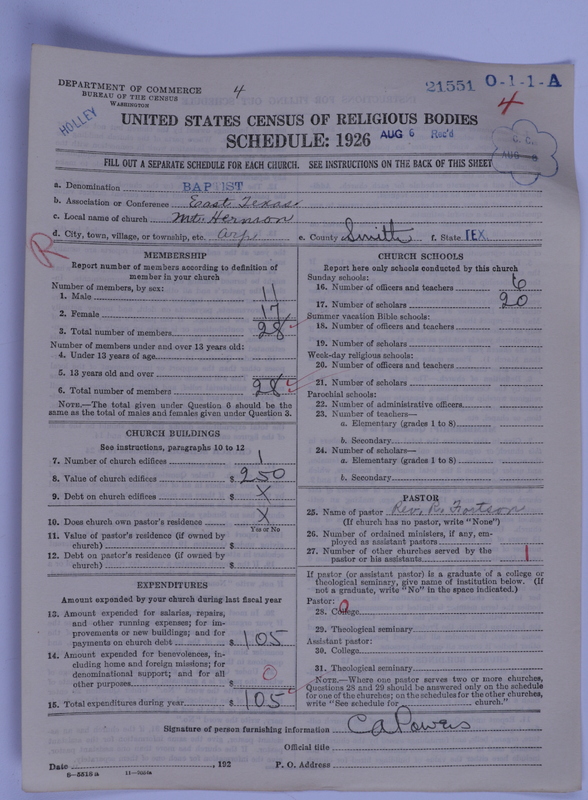 DEPARTMENT OF COMMERCE
BUREAU OF THE CENSUS
WASHINGTON
4
21551 O-1-1-A
4
HOLLEY
UNITED STATES CENSUS OF RELIGIOUS BODIES
SCHEDULE: 1926 AUG 6 Rec'd
C. C.
AUG 6
FILL OUT A SEPARATE SCHEDULE FOR EACH CHURCH. SEE INSTRUCTIONS ON THE BACK OF THIS SHEET
a. Denomination BAPTIST
b. Association or Conference East Texas
c. Local name of church Mt. Hermon
d. City, town, village, or township, etc. Arp e. County Smith f. State TEX.
R
MEMBERSHIP
Report number of members according to definition of
member in your church
Number of members, by sex:
1. Male 11
2. Female 17
3. Total number of members 28
Number of members under and over 13 years old:
4. Under 13 years of age
5. 13 years old and over
6. Total number of members 28
NOTE.—The total given under Question 6 should be the
same as the total of males and females given under Question 3.
CHURCH BUILDINGS
See instructions, paragraphs 10 to 12
7. Number of church edifices 1
8. Value of church edifices $ 250
9. Debt on church edifices $ X
10. Does church own pastor's residence X
Yes or No
11. Value of pastor's residence (if owned by
church) $
12. Debt on pastor's residence (if owned by
church) $
EXPENDITURES
Amount expended by your church during last fiscal year
13. Amount expended for salaries, repairs,
and other running expenses; for im-
provements or new buildings; and for
payments on church debt $ 105
14. Amount expended for benevolences, in-
cluding home and foreign missions; for
denominational support; and for all
other purposes $ 0
15. Total expenditures during year $ 105
CHURCH SCHOOLS
Report here only schools conducted by this church
Sunday schools:
16. Number of officers and teachers 6
17. Number of scholars 20
Summer vacation Bible schools:
18. Number of officers and teachers
19. Number of scholars
Week-day religious schools:
20. Number of officers and teachers
21. Number of scholars
Parochial schools:
22. Number of administrative officers
23. Number of teachers—
a. Elementary (grades 1 to 8)
b. Secondary
24. Number of scholars—
a. Elementary (grades 1 to 8)
b. Secondary
PASTOR
25. Name of pastor Rev. R. Fortson
(If church has no pastor, write "None")
26. Number of ordained ministers, if any, em-
ployed as assistant pastors
27. Number of other churches served by the
pastor or his assistants 1
If pastor (or assistant pastor) is a graduate of a college or
theological seminary, give name of institution below. (If
not a graduate, write "No" in the space indicated.)
Pastor:
28. College 0
29. Theological seminary
Assistant pastor:
30. College
31. Theological seminary
NOTE.—Where one pastor serves two or more churches,
Questions 28 and 29 should be answered only on the schedule
for one of the churches; on the schedules for the other churches,
write "See schedule for church."
Signature of person furnishing information C A Powers
Official title
Date , 192 P. O. Address